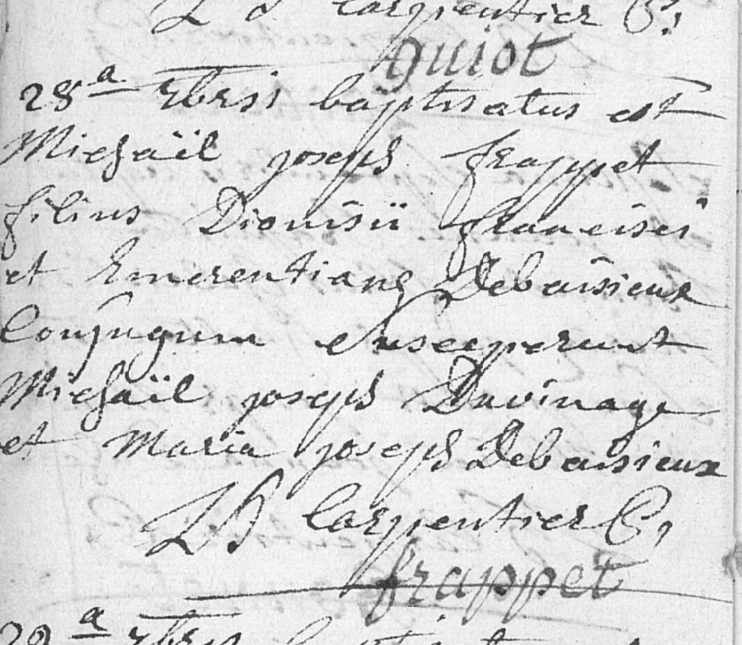 Carpentier C:
guiot
28a Xbris baptisatus est
Michaël joseph frappet
filius Dionisii francisci
et Emerentianę Debaisieux
Conjugum Susceperunt
Michaël joseph Duvinage
et Maria joseph Debaisieux
Carpentier C,
frappet
29a Xbris